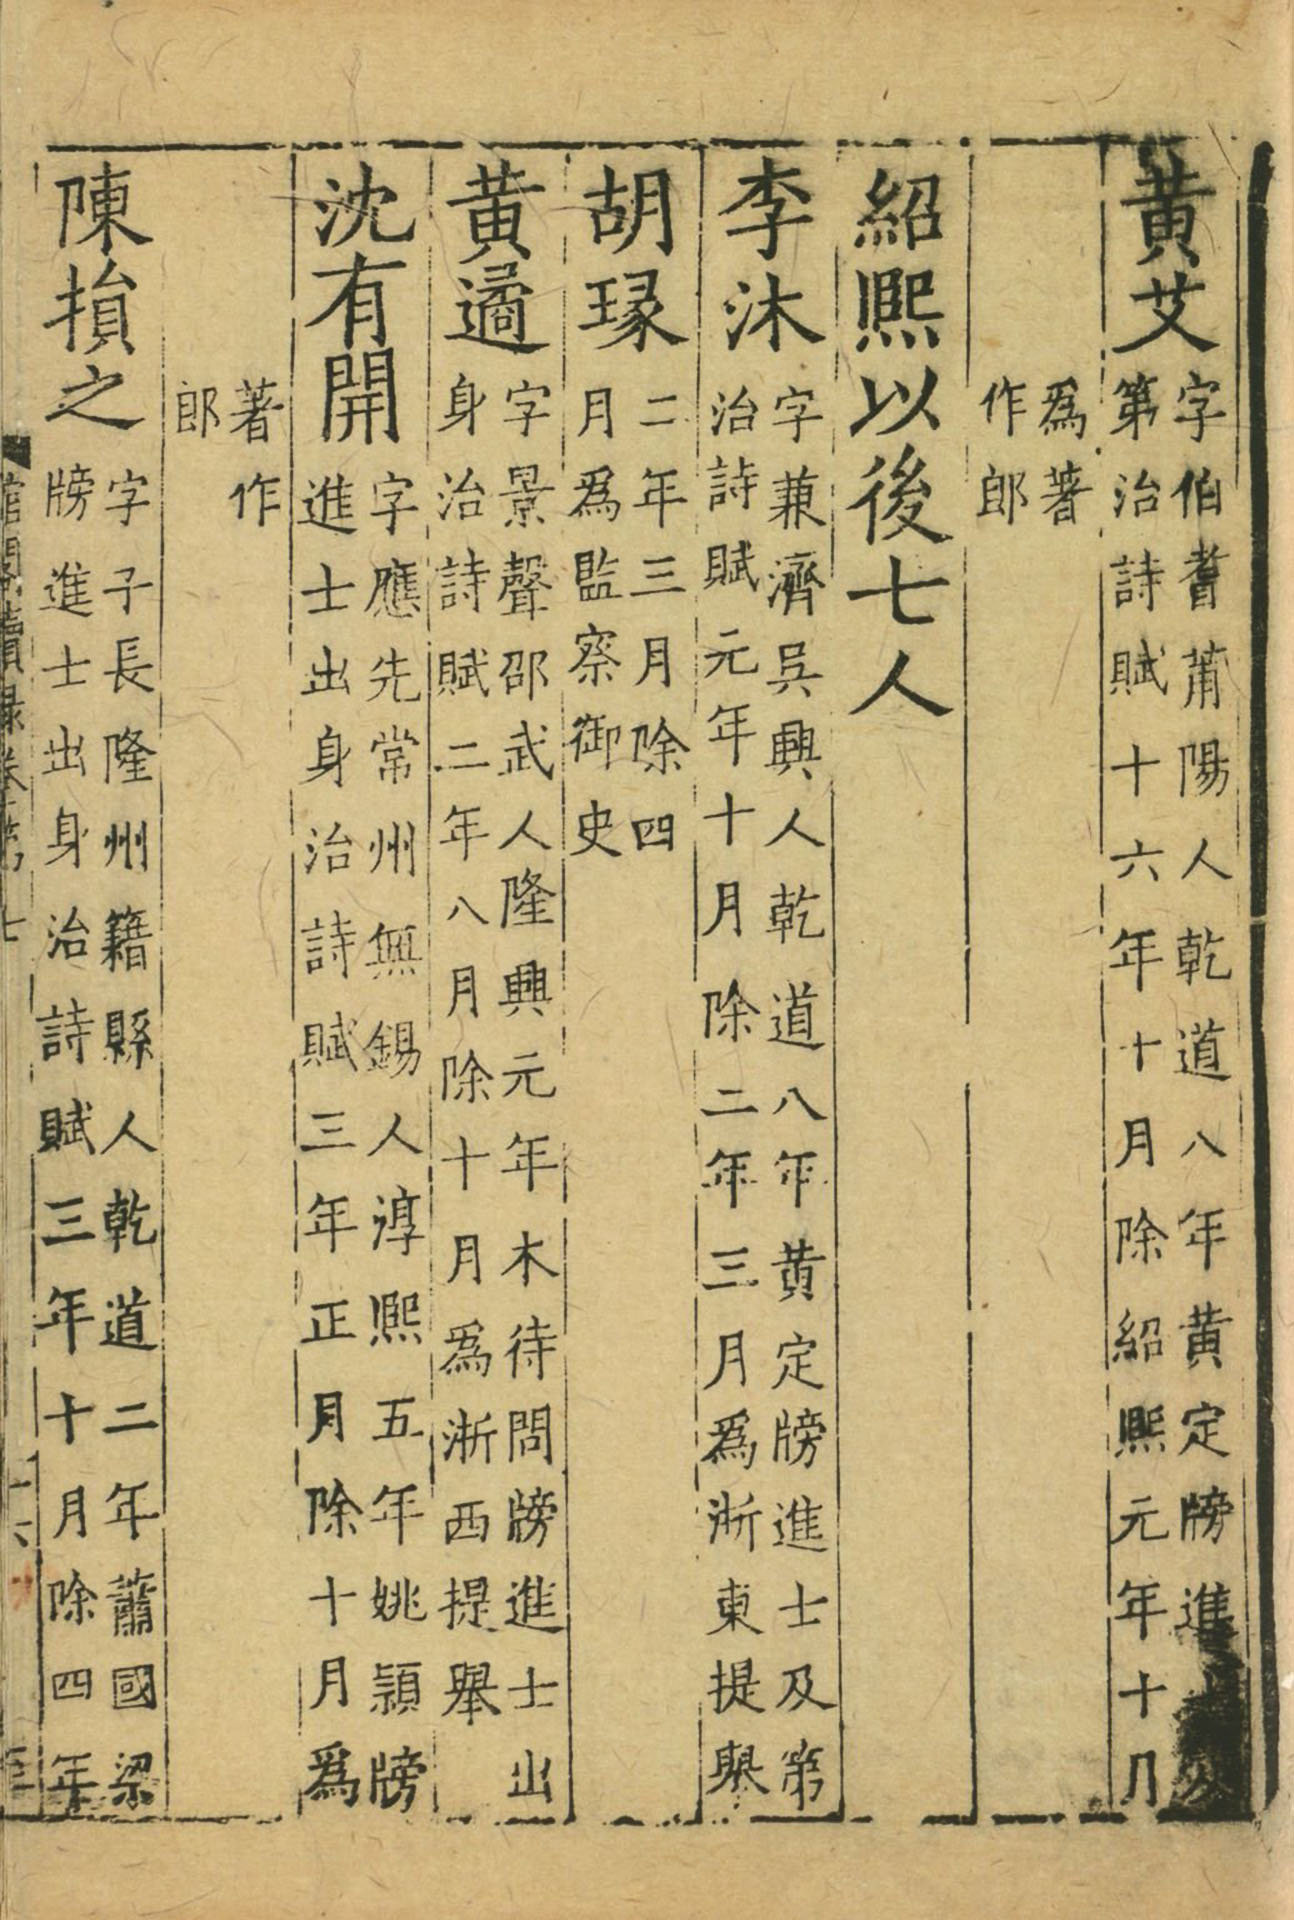 黄艾字伯耆莆陽人乾道八年黄定牓進
第治詩賦十六年十月除紹熙元年十月
爲著
作郎
紹熙以後七人
李沐字兼濟吳興人乾道八年黄定牓進士及第
治詩賦元年十月除二年三月爲浙東提舉
胡瑑二年三月除四
月爲監察御史
黄遹字景聲邵武人隆興元年木待問牓進士出
身治詩賦二年八月除十月爲浙西提舉
沈有開字應先常州無錫人淳熙五年姚穎牓
進士出身治詩賦三年正月除十月爲
著作
郎
陳損之字子長隆州籍縣人乾道二年蕭國梁
牓進士出身治詩賦三年十月除四年
館閣續録卷第七